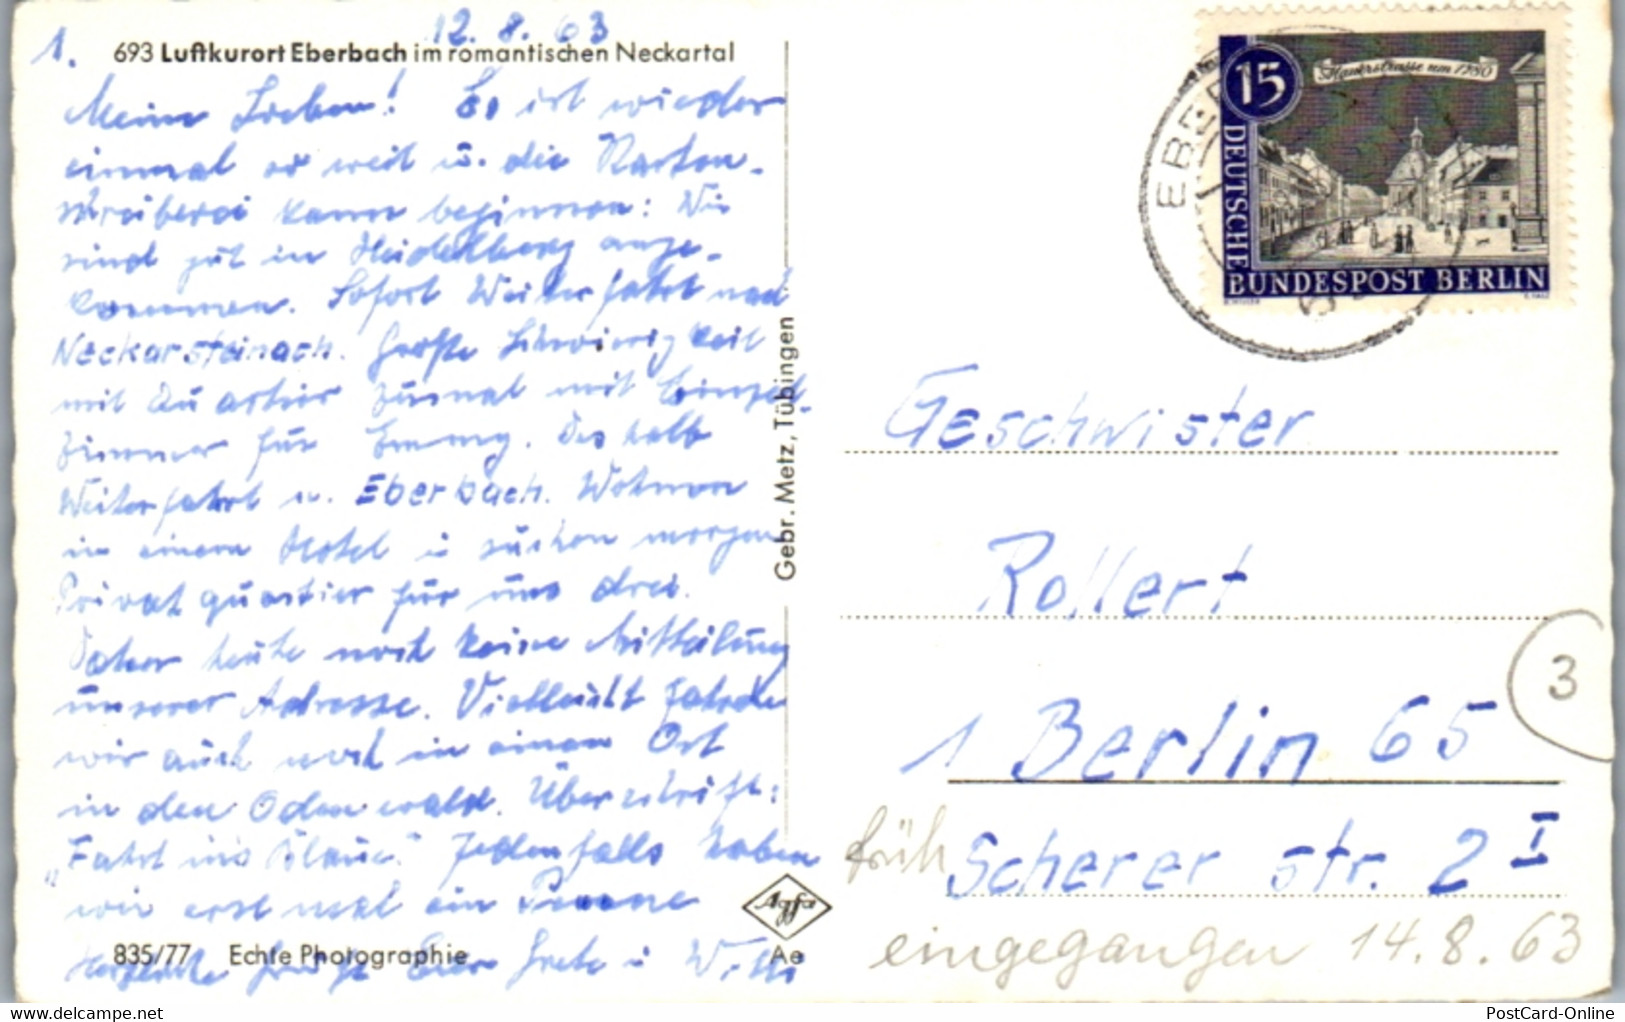 12.8.63
1.
693 Luftkurort Eberbach im romantischen Neckartal
Meine Lieben! Es ist wieder
einmal so weit u. die Karten-
schreiberei kann beginnen: Wir
sind gut in Heidelberg ange-
kommen. Sofort Weiterfahrt nach
Neckarsteinach. Große Schwierigkeit
mit Quartier zumal mit Einzel-
zimmer für Emmy. Deshalb
Weiterfahrt n. Eberbach. Wohnen
in einem Hotel u suchen morgen
Privatquartier für uns drei.
Daher heute noch keine Mitteilung
unserer Adresse. Vielleicht fahren
wir auch noch in einen Ort
in den Odenwald. Überschrift:
"Fahrt ins Blaue." Jedenfalls haben
wir erst mal ein
Herzliche Grüße Eure Grete u Willi
835/77 Echte Photographie
Gebr. Metz, Tübingen
Agfa
Ae
EBER
15
DEUTSCHE
BUNDESPOST BERLIN
Geschwister
Rollert
3
1 Berlin 65
früh Scherer str. 2 I
eingegangen 14.8.63
PostCard-Online